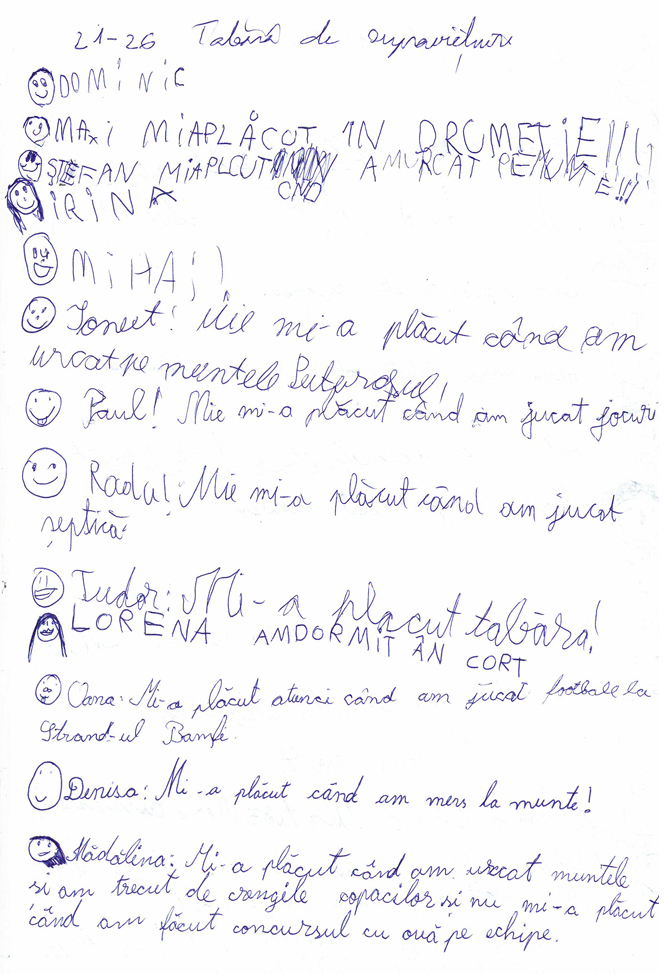 21-26 Tabăra de supraviețuire
DOMINIC
MAXI MIAPLĂCUT IN DRUMEȚIE!!!!
ȘTEFAN MIAPLCUT CND AMURCAT PEMUNTE!!!
IRINA
MIHAI
Ionuț! Mie mi-a plăcut când am
urcat pe muntele
Paul! Mie mi-a plăcut când am jucat jocuri
Radu! Mie mi-a plăcut când am jucat
șeptică.
Tudor: Mi-a placut tabăra!
LORENA AMDORMIT ÂN CORT
Oana: Mi-a plăcut atunci când am jucat footbale la
Strand-ul
Denisa: Mi-a plăcut când am mers la munte!
Mădălina: Mi-a plăcut când am urcat muntele
si am trecut de crengile copacilor si nu mi-a plăcut
când am făcut concursul cu ouă pe echipe.